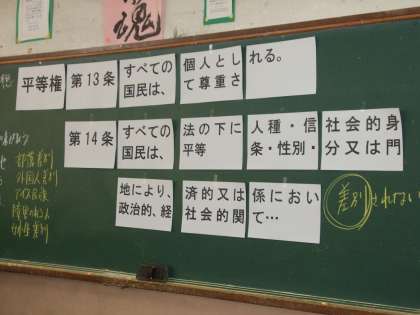 魂
平等権 第13条 すべての国民は、 個人として尊重さ れる。
第14条 すべての国民は、 法の下に平等 人種・信条・性別・ 社会的身分又は門
地により、政治的、経 済的又は社会的関 係において… 差別されない
部落差別
外国人差別
アイヌ民族
障害のある人
女性差別